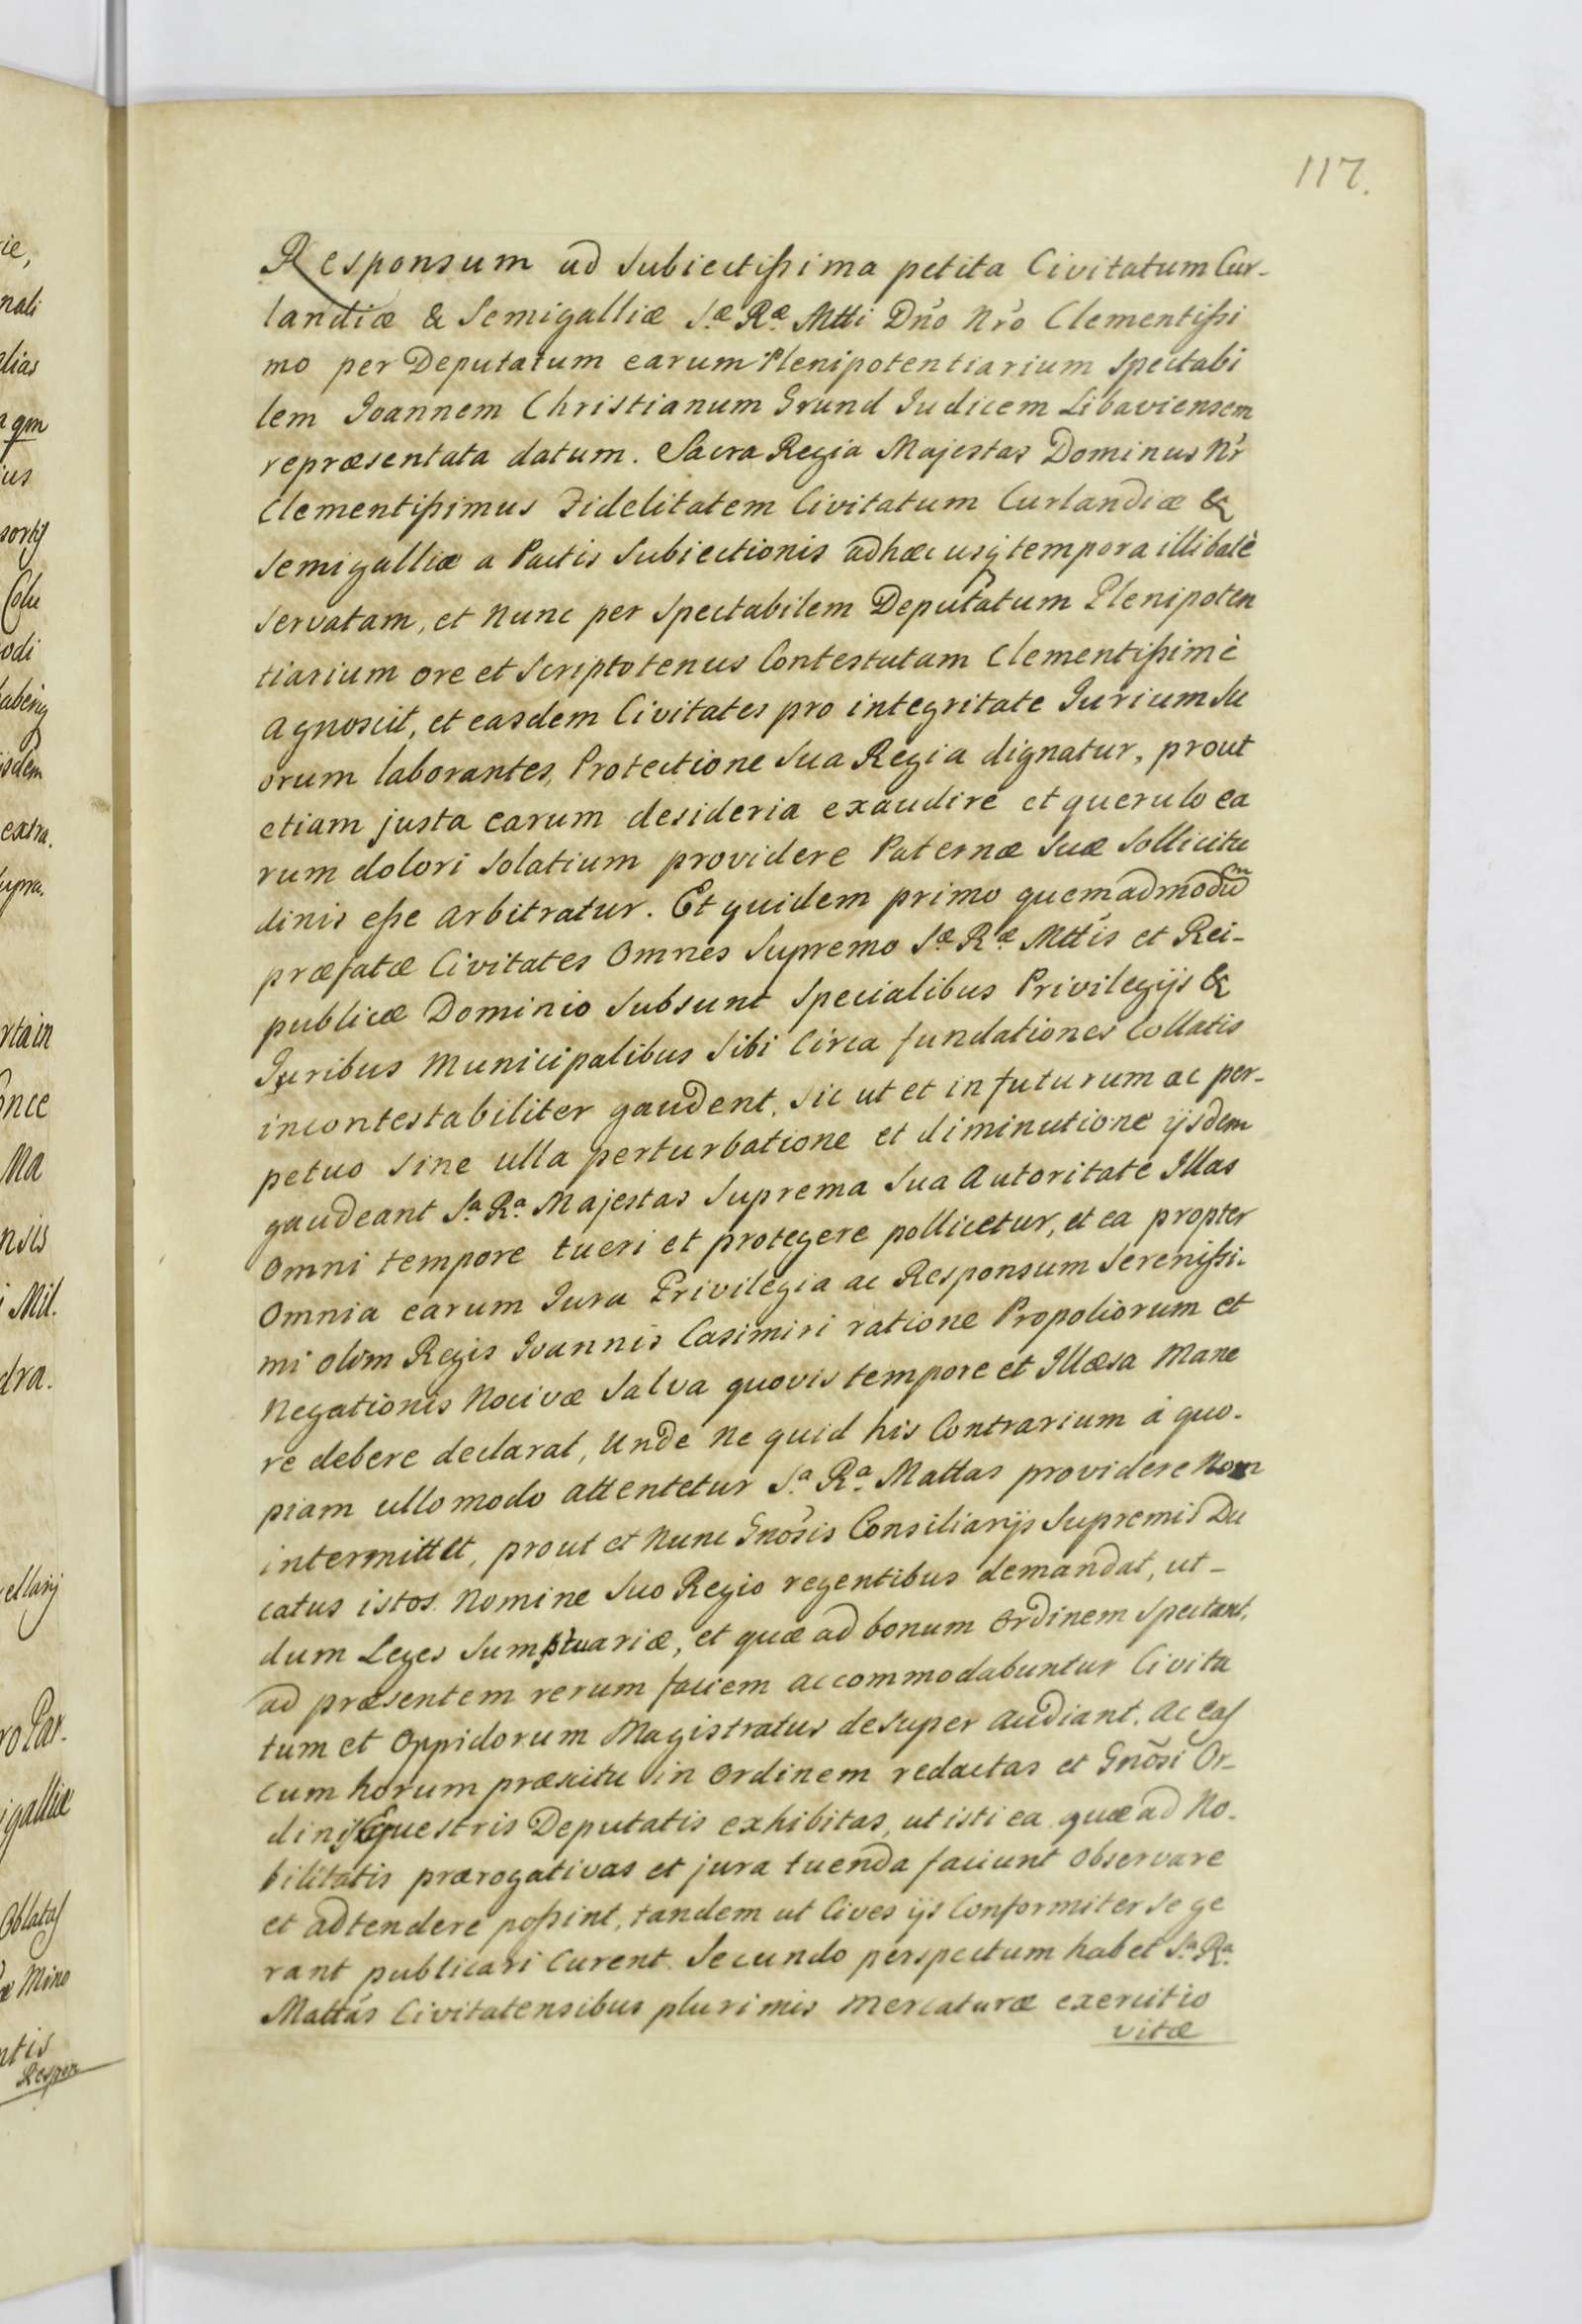 117.
Responsum ad Subiectissima petita Civitatum Cur-
landiæ & Semigalliæ S.æ R.æ Mtti Dño Nr̃o Clementissi
mo per Deputatum earum Plenipotentiarium Spectabi
lem Ioannem Christianum Grund Iudicem Libaviensem
repræsentata datum. Sacra Regia Majestas Dominus Nr̃
Clementissimus Fidelitatem Civitatum Curlandiæ &
Semigalliæ a Pactis Subiectionis adhæc usq tempora illibatè
Servatam, et Nunc per Spectabilem Deputatum Plenipoten
tiarium ore et Scriptotenus Contestatam Clementissimè
agnoscit, et easdem Civitates pro integritate Iurium Su
orum laborantes, Protectione Sua Regia dignatur, prout
etiam justa earum desideria exaudire et querulo ea
rum dolori Solatium providere Paternæ Suæ Sollicitu
dinis esse arbitratur. Et quidem primo quemadmodum
præfatæ Civitates Omnes Supremo S.æ R.æ Mttis et Rei-
publicæ Dominio Subsunt Specialibus Privilegijs &
Iuribus Municipalibus Sibi Circa fundationes Collatis
incontestabiliter gaudent, Sic ut et in futurum ac per-
petuo Sine ulla perturbatione et diminutione ijsdem
gaudeant S.a R.a Majestas Suprema Sua Autoritate Illas
Omni tempore tueri et protegere pollicetur, et ea propter
Omnia earum Iura Privilegia ac Responsum Serenissi-
mi olim Regis Ioannis Casimiri ratione Propoliorum et
Negationis Nocivæ Salva quovis tempore et Illæsa Mane
re debere declarat, Unde Ne quid his Contrarium à quo-
piam ullo modo attentetur S.a R.a Mattas providere Non
intermittet, prout et Nunc Gnõsis Consiliarijs Supremis Du
catus istos Nomine Suo Regio regentibus demandat, ut-
dum Leges Sumptuariæ, et quæ ad bonum Ordinem Spectant,
ad præsentem rerum faciem accommodabuntur Civita
tum et Oppidorum Magistratus desuper audiant, ac eas
Cum horum præscitu in Ordinem redactas et Gnõsi Or-
dinis Equestris Deputatis exhibitas, ut isti ea quæ ad No-
bilitatis prærogativas et jura tuenda faciunt Observare
et adtendere possint, tandem ut Cives ijs Conformiter Se ge
rant publicari Curent. Secundo perspectum habet S.a R.a
Mattas Civitatensibus plurimis Mercaturæ exercitio
vitæ